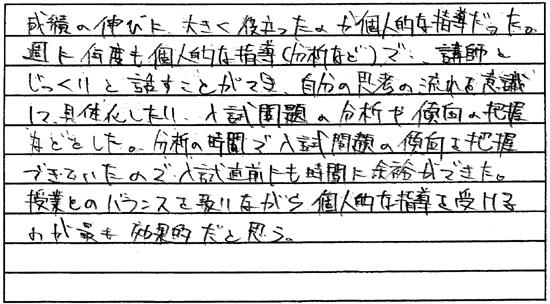 成績の伸びに大きく役立ったのが個人的な指導だった。
週に何度も個人的な指導(分析など)で、講師と
じっくりと話すことができ、自分の思考の流れを意識
して具体化したり、入試問題の分析や傾向の把握
などをした。分析の時間で入試問題の傾向を把握
できていたので入試直前にも時間に余裕ができた。
授業とのバランスを取りながら個人的な指導を受ける
のが最も効果的だと思う。